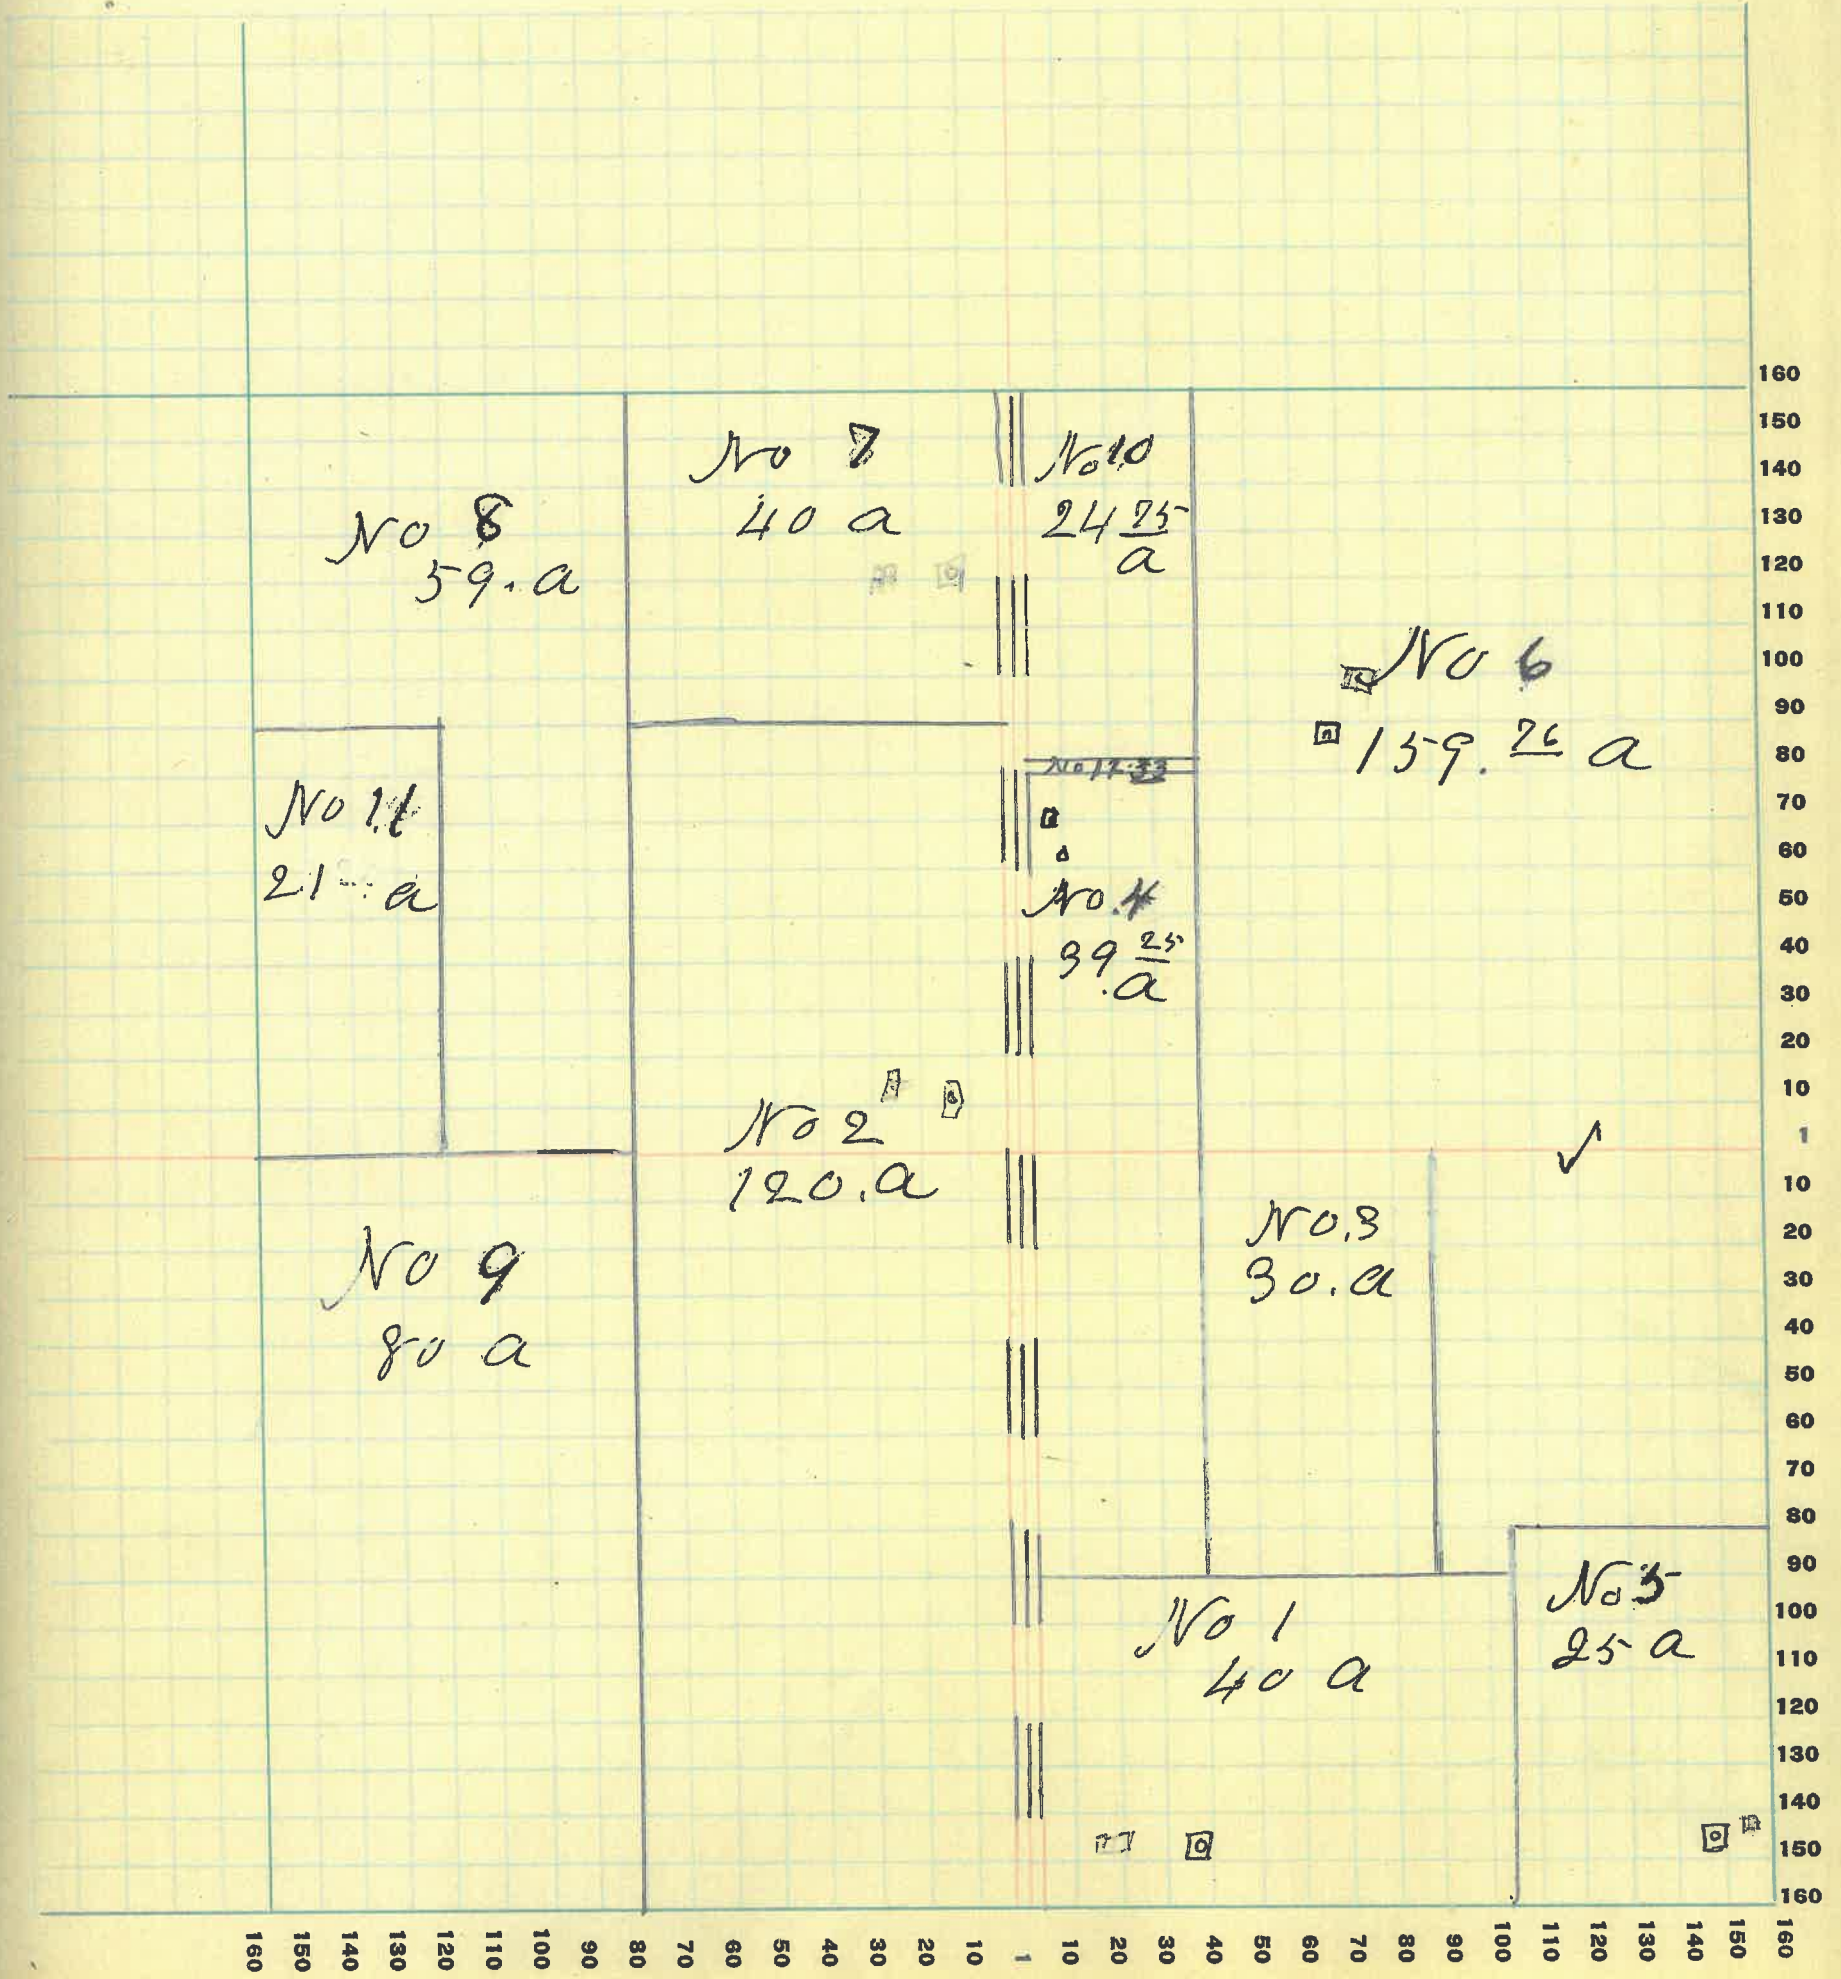 No 8
59. a
No 7
40 a
No 10
24 75
a
No 6
159. 76 a
No 11
21 a
No 4
39 25
.a
No 2
120.a
No.3
30.a
No 9
80 a
No 1
40 a
No 5
25 a
160
150
140
130
120
110
100
90
80
70
60
50
40
30
20
10
1
10
20
30
40
50
60
70
80
90
100
110
120
130
140
150
160
160 150 140 130 120 110 100 90 80 70 60 50 40 30 20 10 1 10 20 30 40 50 60 70 80 90 100 110 120 130 140 150 160